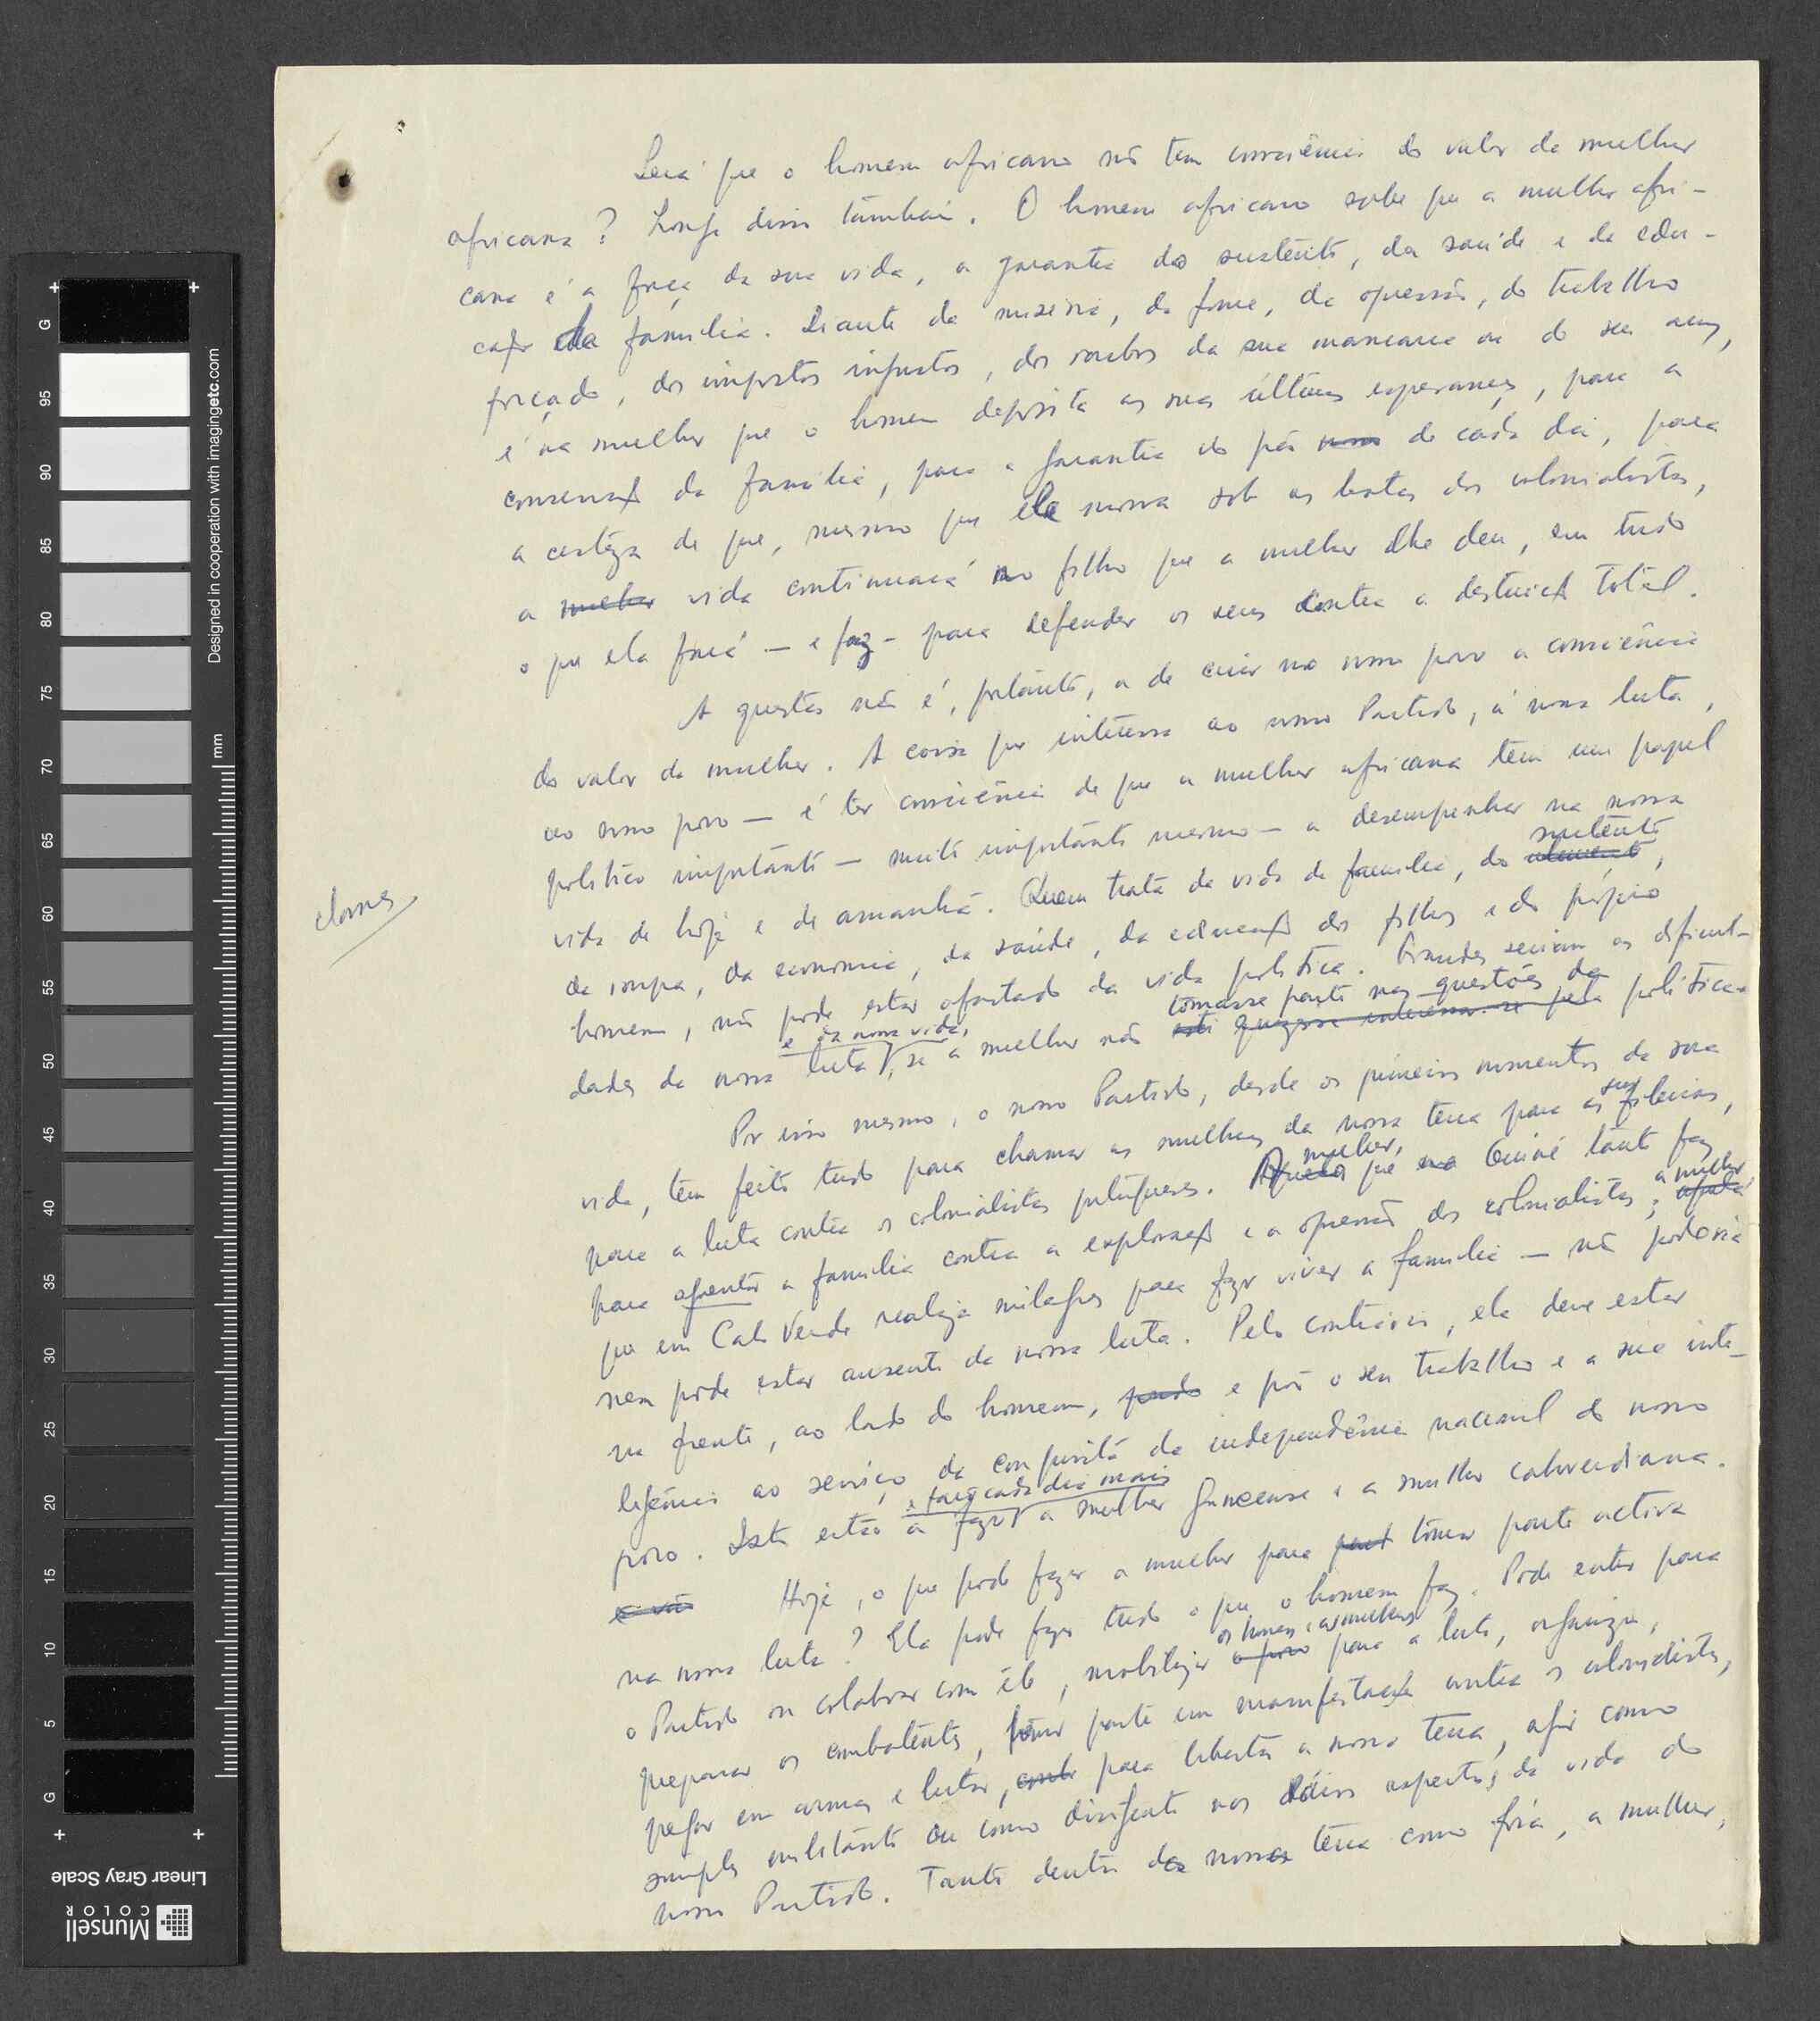 Será que o homem africano não tem consciência do valor da mulher
africana? Longe disso também. O homem africano sabe que a mulher afri-
cana é a força da sua vida, a garantia do sustento, da saúde e da edu-
cação da família. Diante da miséria, da fome, da opressão, do trabalho
forçado, dos impostos injustos, dos roubos da sua mancarra ou do seu arroz,
é na mulher que o homem deposita as suas últimas esperanças, para a
conservação da família, para a garantia do pão de cada dia, para
a certeza de que, mesmo que ele morra sob as botas dos colonialistas,
a mulher vida continuará no filho que a mulher lhe deu, em tudo
o que ela fará — e faz — para defender os seus contra a destruição total.
A questão não é, portanto, a de criar no nosso povo a consciência
do valor da mulher. A coisa que interessa ao nosso Partido, à nossa luta,
ao nosso povo — é ter consciência de que a mulher africana tem um papel
político importante — muito importante mesmo — a desempenhar na nossa
vida de hoje e de amanhã. Quem trata da vida da família, do alimento sustento,
da roupa, da economia, da saúde, da educação dos filhos e do próprio
homem, não pode estar afastado da vida política. Grandes seriam as dificul-
dades da nossa luta e da nossa vida, se a mulher não tomasse parte nas questões da quizesse interessar-se pela política.
Por isso mesmo, o nosso Partido, desde os primeiros momentos da sua
vida, tem feito tudo para chamar as mulheres da nossa terra para as suas fileiras,
para a luta contra os colonialistas portugueses. A mulher, que na Guiné tanto faz
para aguentar a família contra a exploração e a opressão dos colonialistas; a mulher
que em Cabo Verde realiza milagres para fazer viver a família — não poderia
nem pode estar ausente da nossa luta. Pelo contrário, ela deve estar
na frente, ao lado do homem, e pôr o seu trabalho e a sua inte-
ligência ao serviço da conquista da independência nacional do nosso
povo. Isto estão a fazer e farão cada dia mais a mulher guineense e a mulher caboverdiana.
e não Hoje, o que pode fazer a mulher para tomar parte activa
na nossa luta? Ela pode fazer tudo o que o homem faz. Pode entrar para
o Partido ou colaborar com êle, mobilizar o povo os homens e as mulheres para a luta, organizar,
preparar os combatentes, tomar parte em manifestações contra os colonialistas,
pegar em armas e lutar, para libertar a nossa terra, agir como
simples militante ou como dirigente nos vários aspectos da vida do
nosso Partido. Tanto dentro da nossa terra como fóra, a mulher,
95
90
85
80
75
70
65
60
55
50
45
40
35
30
25
20
15
10
5
G
G
mm
Designed in cooperation with imagingetc.com
Linear Gray Scale
Munsell
COLOR